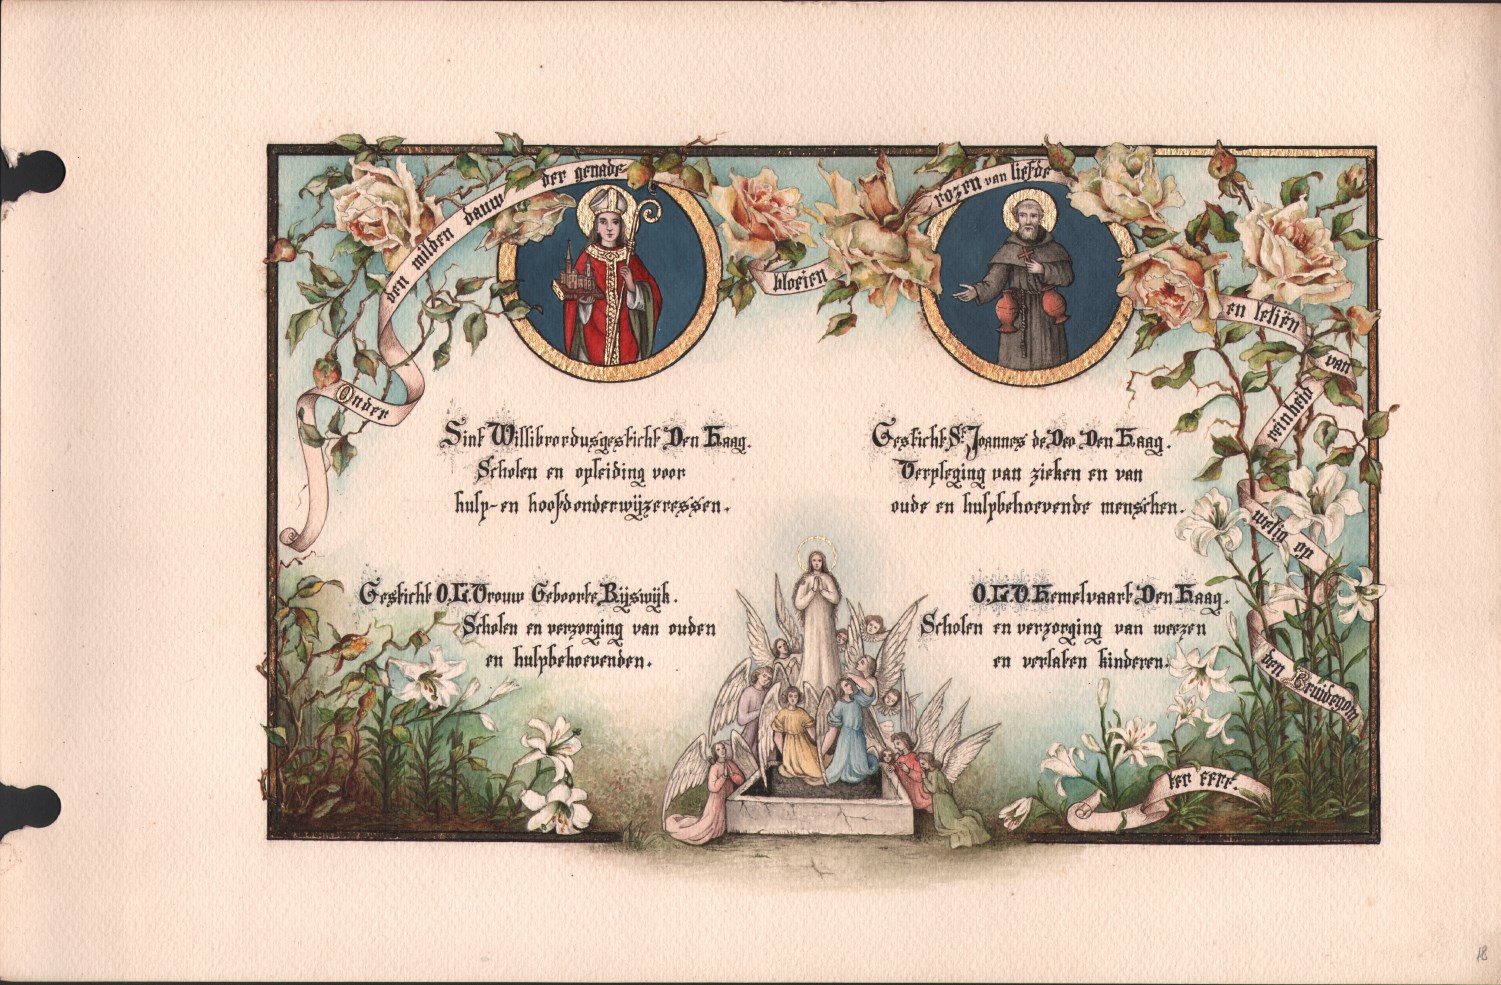 Onder den milden dauw der genade
bloeien
rozen van liefde
en leliën van
reinheid
welig op
den Bruidegom
ter eere.
Sint Willibrordusgesticht Den Haag.
Scholen en opleiding voor
hulp- en hoofdonderwijzeressen.
Gesticht St Joannes de Deo Den Haag.
Verpleging van zieken en van
oude en hulpbehoevende menschen.
Gesticht O.L.Vrouw Geboorte Rijswijk.
Scholen en verzorging van ouden
en hulpbehoevenden.
O.L.V. Hemelvaart Den Haag.
Scholen en verzorging van weezen
en verlaten kinderen.
18